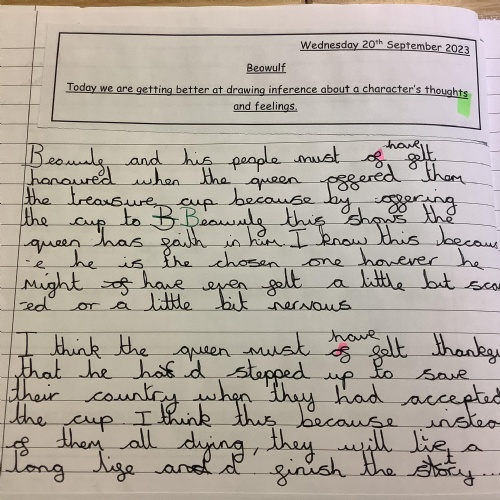 Wednesday 20th September 2023
Beowulf
Today we are getting better at drawing inference about a character's thoughts
and feelings.
Beowulf and his people must of have felt
honoured when the queen offered them
the treasure cup because by offering
the cup to B Beowulf this shows the
queen has faith in him I know this becaus
-e he is the chosen one however he
might of have even felt a little bit sca
-ed or a little bit nervous
I think the queen must of have felt thankfu
that he had stepped up to save
their country when they had accepted
the cup I think this because instea
of them all dying, they will live a
long life and finish the